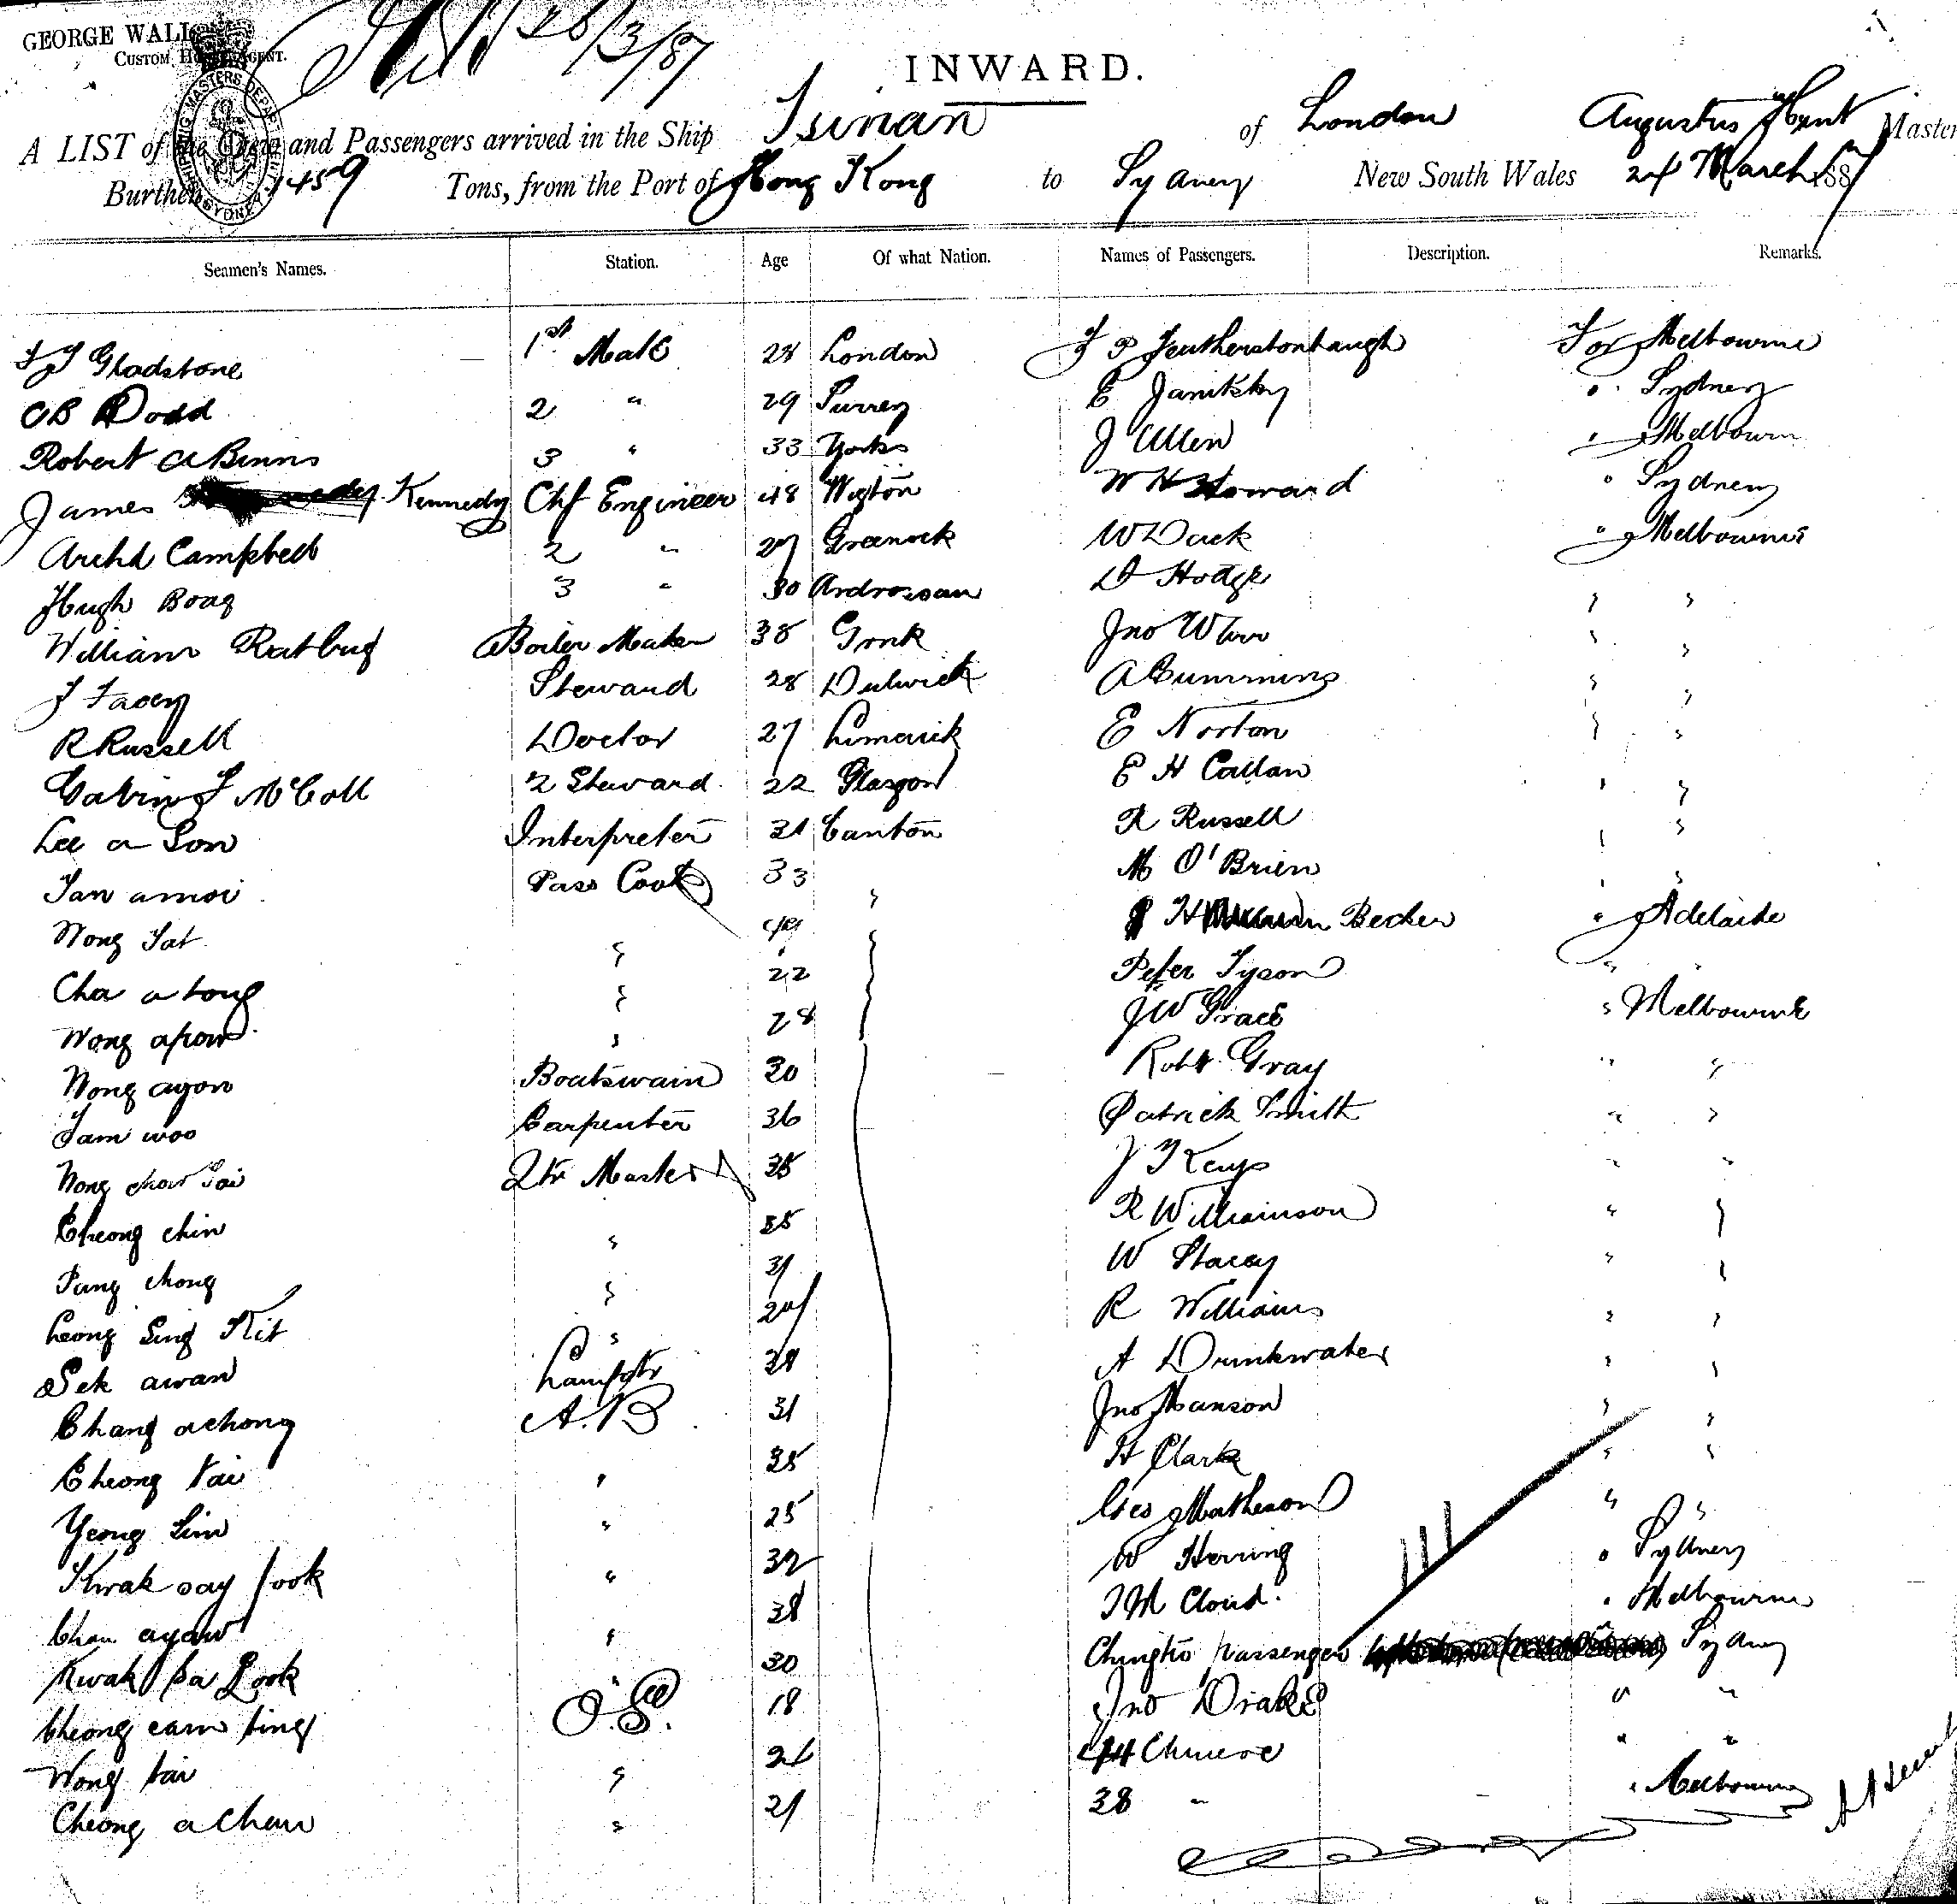 GEORGE WALL
CUSTOM HOUSE AGENT.
28/3/87
INWARD.
SHIPPING MASTERS DEPARTMENT SYDNEY
A LIST of the Crew and Passengers arrived in the Ship Tsinan of London Augustus Hunt Master
Burthen 1459 Tons, from the Port of Hong Kong to Sydney New South Wales 24 March 1887
Seamen's Names. Station. Age Of what Nation. Names of Passengers. Description. Remarks.
Gladstone 1st Mate 28 London F P Featherstonhaugh For Melbourne
C B Dodd 2 " 29 Surrey E Janitzky " Sydney
Robert A Binns 3 " 33 Yorks J Allen " Melbourn
James Kennedy Chf Engineer 48 Wigton W H Howard " Sydney
Archd Campbell 2 " 27 Greenock W Duck " Melbourne
Hugh Boag 3 " 30 Ardrossan D Hodge " "
William Boiler Maker 38 Jno " "
J Facey Steward 28 Dulwich A Cummins " "
R Russell Doctor 27 Limerick E Norton " "
McColl 2 Steward 22 Glasgow E H Callan " "
Lee a Son Interpreter 31 Canton R Russell " "
Tan amoi Pass Cook 33 " M O'Brien " "
Wong Tat " " Becker " Adelaide
Cha a tong " 22 " Peter Tyson " "
Wong apow " 28 J W Grace " Melbourne
Wong ayon Boatswain 30 Robt Gray " "
Tam woo Carpenter 36 Patrick Smith " "
Wong chow Tai Qtr Master 35 J T Keys " "
Cheong chin " 35 R Williamson " "
Pang chong " 31 W Stacey " "
Leong Sing Kit " R Williams " "
Sek awan Lamptr A Drinkwater " "
Chang achong A.B 31 Jno Manson " "
Cheong tai " 35 H Clark " "
Yeong Lim " 25 Geo Matheson " "
Kwak say fook " 32 W Herring " Sydney
Chan ayaw " 38 J M Cloud. " Melbourne
Kwak fook " 30 Chingtu passenger Sydney
Cheong cam ting O.S. 18 Jno Drake " "
Wong tai " 21 44 Chinese " "
Cheong a Chew " 21 38 " " Melbourne